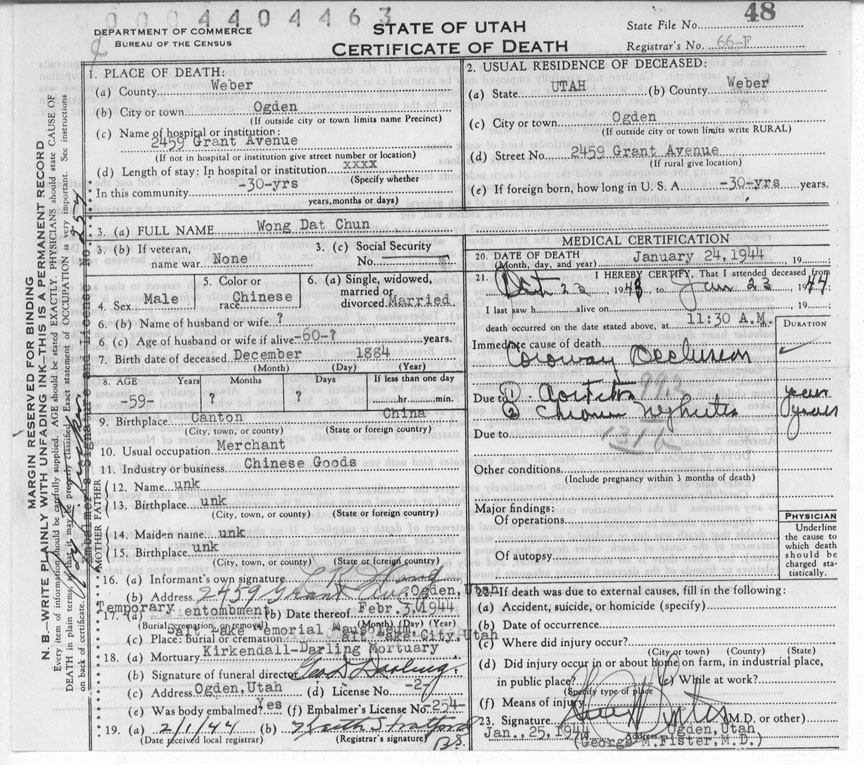 0004404463
48
DEPARTMENT OF COMMERCE
BUREAU OF THE CENSUS
STATE OF UTAH
CERTIFICATE OF DEATH
State File No.
Registrar's No. 66-F
MARGIN RESERVED FOR BINDING
N. B.—WRITE PLAINLY WITH UNFADING INK—THIS IS A PERMANENT RECORD
Every item of information should be carefully supplied. AGE should be stated EXACTLY. PHYSICIANS should state CAUSE OF
DEATH in plain terms, so that it may be properly classified. Exact statement of OCCUPATION is very important. See instructions
on back of certificate.
Embalmer's Signature and License No. 254
1. PLACE OF DEATH:
(a) County Weber
(b) City or town Ogden
(If outside city or town limits name Precinct)
(c) Name of hospital or institution:
2459 Grant Avenue
(If not in hospital or institution give street number or location)
(d) Length of stay: In hospital or institution xxxx
(Specify whether
In this community -30-yrs
years, months or days)
2. USUAL RESIDENCE OF DECEASED:
(a) State UTAH (b) County Weber
(c) City or town Ogden
(If outside city or town limits write RURAL)
(d) Street No 2459 Grant Avenue
(If rural give location)
(e) If foreign born, how long in U. S. A -30-yrs years.
3. (a) FULL NAME Wong Dat Chun
3. (b) If veteran,
name war None
3. (c) Social Security
No.
4. Sex Male
5. Color or
race Chinese
6. (a) Single, widowed,
married or
divorced Married
6. (b) Name of husband or wife ?
6. (c) Age of husband or wife if alive -60-? years.
7. Birth date of deceased December 1884
(Month) (Day) (Year)
8. AGE Years Months Days If less than one day
-59- ? ? hr. min.
9. Birthplace Canton China
(City, town, or county) (State or foreign country)
10. Usual occupation Merchant
11. Industry or business Chinese Goods
FATHER
12. Name unk
13. Birthplace unk
(City, town, or county) (State or foreign country)
MOTHER
14. Maiden name unk
15. Birthplace unk
(City, town, or county) (State or foreign country)
16. (a) Informant's own signature
(b) Address 2459 Grant Ave Ogden, Utah
17. (a) Temporary entombment (b) Date thereof Febr. 3, 1944
(Burial, cremation, or removal) (Month) (Day) (Year)
(c) Place: burial or cremation Salt Lake Memorial Mausoleum, Salt Lake, City, Utah
18. (a) Mortuary Kirkendall-Darling Mortuary
(b) Signature of funeral director Geo D Darling
(c) Address Ogden, Utah (d) License No. -2-
(e) Was body embalmed? Yes (f) Embalmer's License No. -254-
19. (a) 2/1/44 (b) Keith Stratford
(Date received local registrar) (Registrar's signature)
MEDICAL CERTIFICATION
20. DATE OF DEATH January 24, 1944 19
(Month, day, and year)
21. I HEREBY CERTIFY, That I attended deceased from
23 1943 to Jan 23 1944
I last saw h alive on 19
death occurred on the date stated above, at 11:30 A.M. m.
DURATION
Immediate cause of death
Coronary Occlusion
Due to 1. Aortitis years
992
2 Chronic Nephritis years
Due to 131b
Other conditions
(Include pregnancy within 3 months of death)
Major findings:
Of operations
Of autopsy
PHYSICIAN
Underline
the cause to
which death
should be
charged sta-
tistically.
22. If death was due to external causes, fill in the following:
(a) Accident, suicide, or homicide (specify)
(b) Date of occurrence
(c) Where did injury occur?
(City or town) (County) (State)
(d) Did injury occur in or about home, on farm, in industrial place,
in public place? (e) While at work?
(Specify type of place
(f) Means of injury
23. Signature M.D. or other)
Jan., 25, 1944 Address Ogden, Utah
(George M. Fister, M.D.)